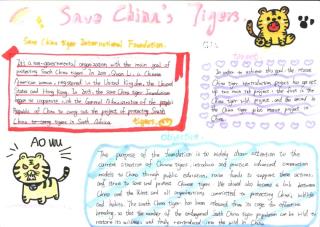 Save China's Tigers
Save China tiger International Foundation.
It's a non-governmental organization with the main goal of
protecting South China tiger. In 2000, Quan Li, a Chinese
American woman, registered in the United Kingdom, the United
States and Hong Kong. In 2002, the Save China Tiger Foundation
began to cooperate with the General Administration of the people's
Republic of China to carry out the project of protecting South
China to tiger in South Africa.
tigers
In order to achieve this goal, the rescue
China Tiger International project has set
up two main sub projects, the first is the
China tiger wild project, and the second is
the China tiger pilot reserve project in
China.
AO WU
Objective
The purpose of the foundation is to widely draw attention to the
current situation of Chinese tigers, introduce and practice advanced conservation
models to China through public education, raise funds to support these actions,
and strive to save and protect Chinese tigers. We should also become a link between
China and the West and all organizations committed to protecting China, wildlife
and habits. The South China tiger has been released from its cage for effective
breeding, so that the number of the endangered South China tiger population can be wild to
restore its wildness and truly reintroduced into the wild in China.